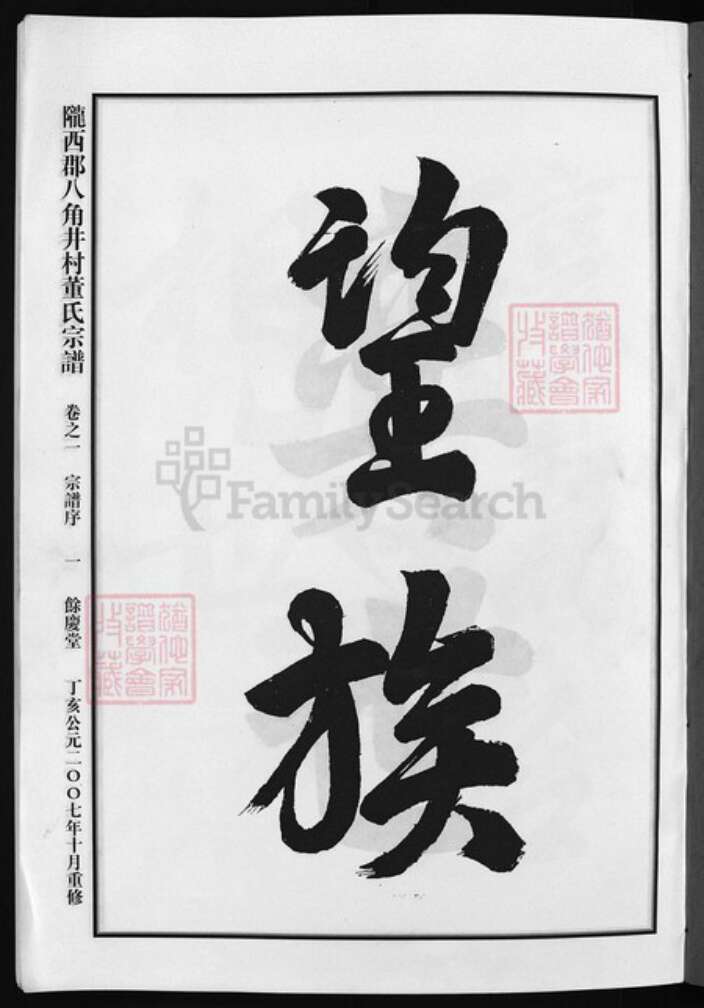 望族
隴西郡八角井村董氏宗譜 卷之一 宗譜序 一 餘慶堂 丁亥公元二〇〇七年十月重修
FamilySearch
譜學會
藏
譜學會
藏